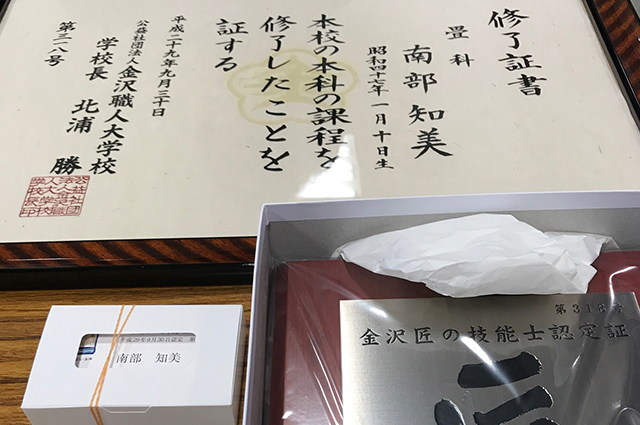 修了証書
畳科
南部知美
昭和四十 年一月十日生
本校の本科の課程を
修了したことを
証する
平成二十九年九月三十日
公益社団法人金沢職人大学校
学校長 北浦 勝
第三一八号
平成29年9月30日認定 第
南部 知美
第318号
金沢匠の技能士認定証